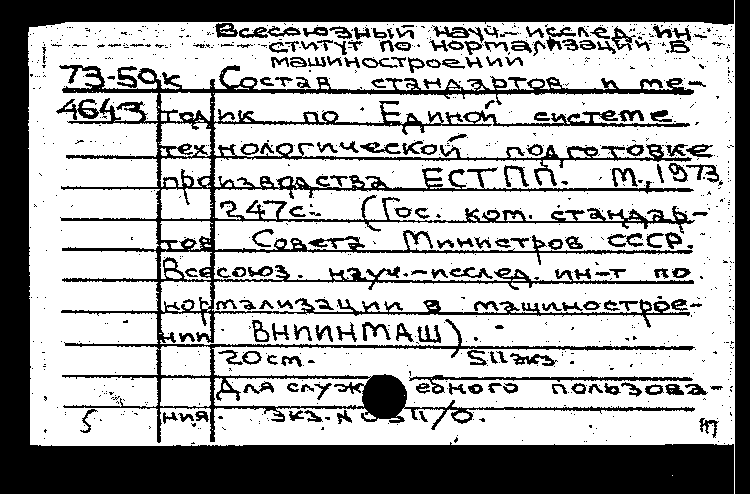 Всесоюзный науч.-исслед. ин-
ститут по нормализации в
машиностроении
73-50к Состав стандартов и ме-
4643 тодик по Единой системе
технологической подготовке
производства ЕСТПП. М., 1973
247с. (Гос. ком. стандар-
тов Совета Министров СССР.
Всесоюз. науч.-исслед. ин-т по
нормализации в машинострое-
нии ВНИИНМАШ).
20см. 511экз.
Для служебного пользова-
5 ния. Экз.№ 511/0.